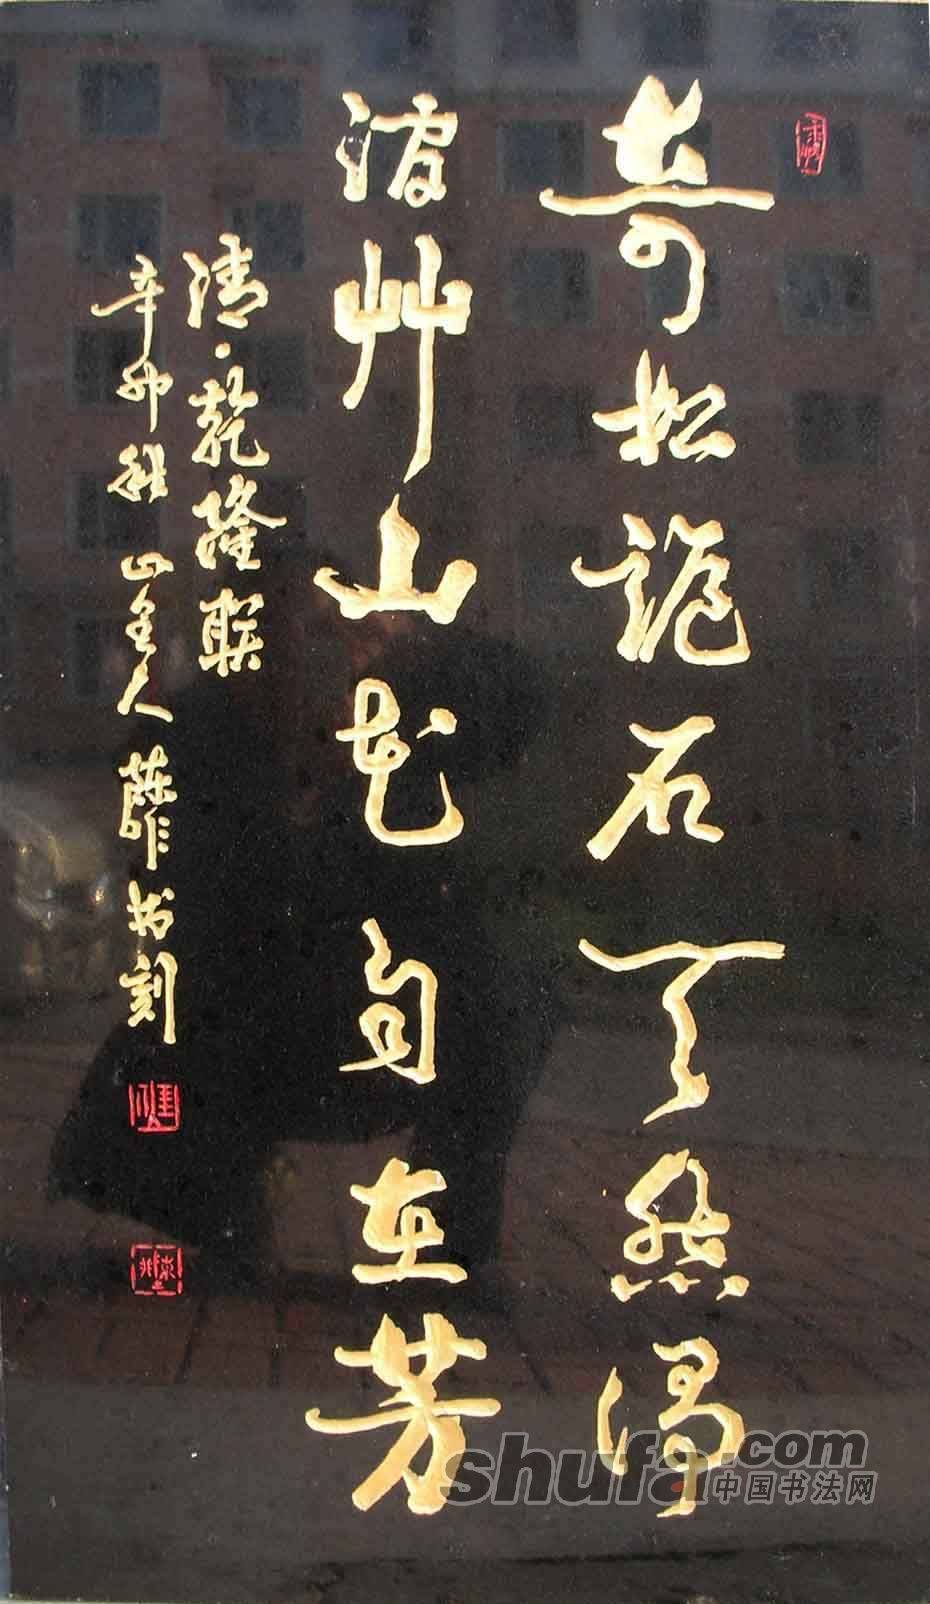 奇松詭石天然淂
艸山花自在芳
清·乾隆联
辛卯山人书刻
shufa.com
中国书法网